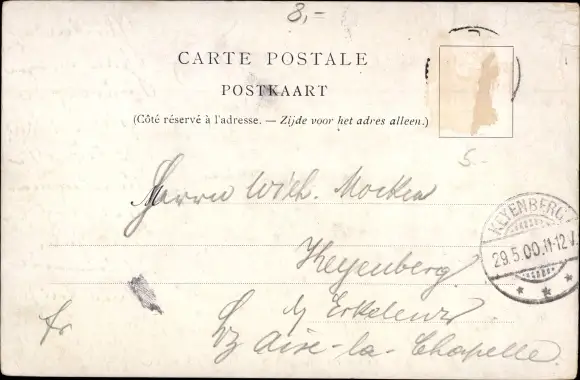 8,=
CARTE POSTALE
POSTKAART
(Côté réservé à l'adresse. — Zijde voor het adres alleen.)
5.-
Herrn Wilh. Mocken
KEYENBERG
29.5.00.11-12V.
Keyenberg
b/ Erkelenz
Bz Aise-la-Chapelle
fr